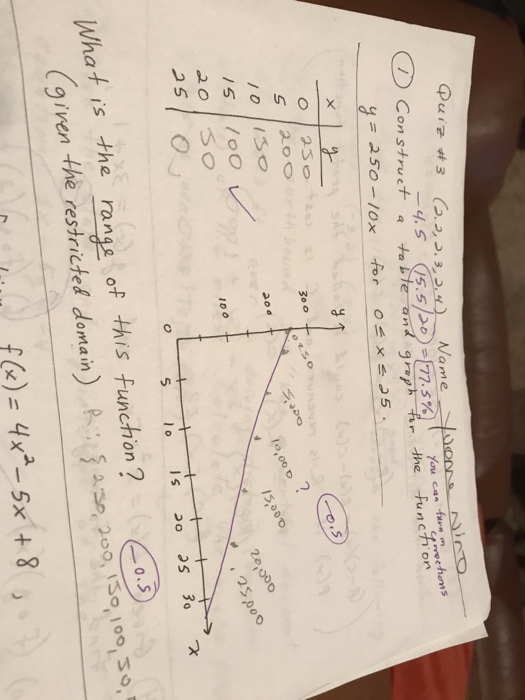 Quiz #3 (2.2, 2.3, 2.4) Name
-4.5 15.5/20 = 77.5% You can turn in corrections
① Construct a table and graph for the function
y = 250 - 10x for 0 ≤ x ≤ 25.
x y
0 250
5 200
10 150
15 100
20 50
25 0
y
300
200
100
0 5 10 15 20 25 30 x
0,250
5,200
10,000
?
15,000
20,000
25,000
-0.5
What is the range of this function?
(given the restricted domain) R: {250, 200, 150, 100, 50,
-0.5
f(x) = 4x² - 5x + 8,